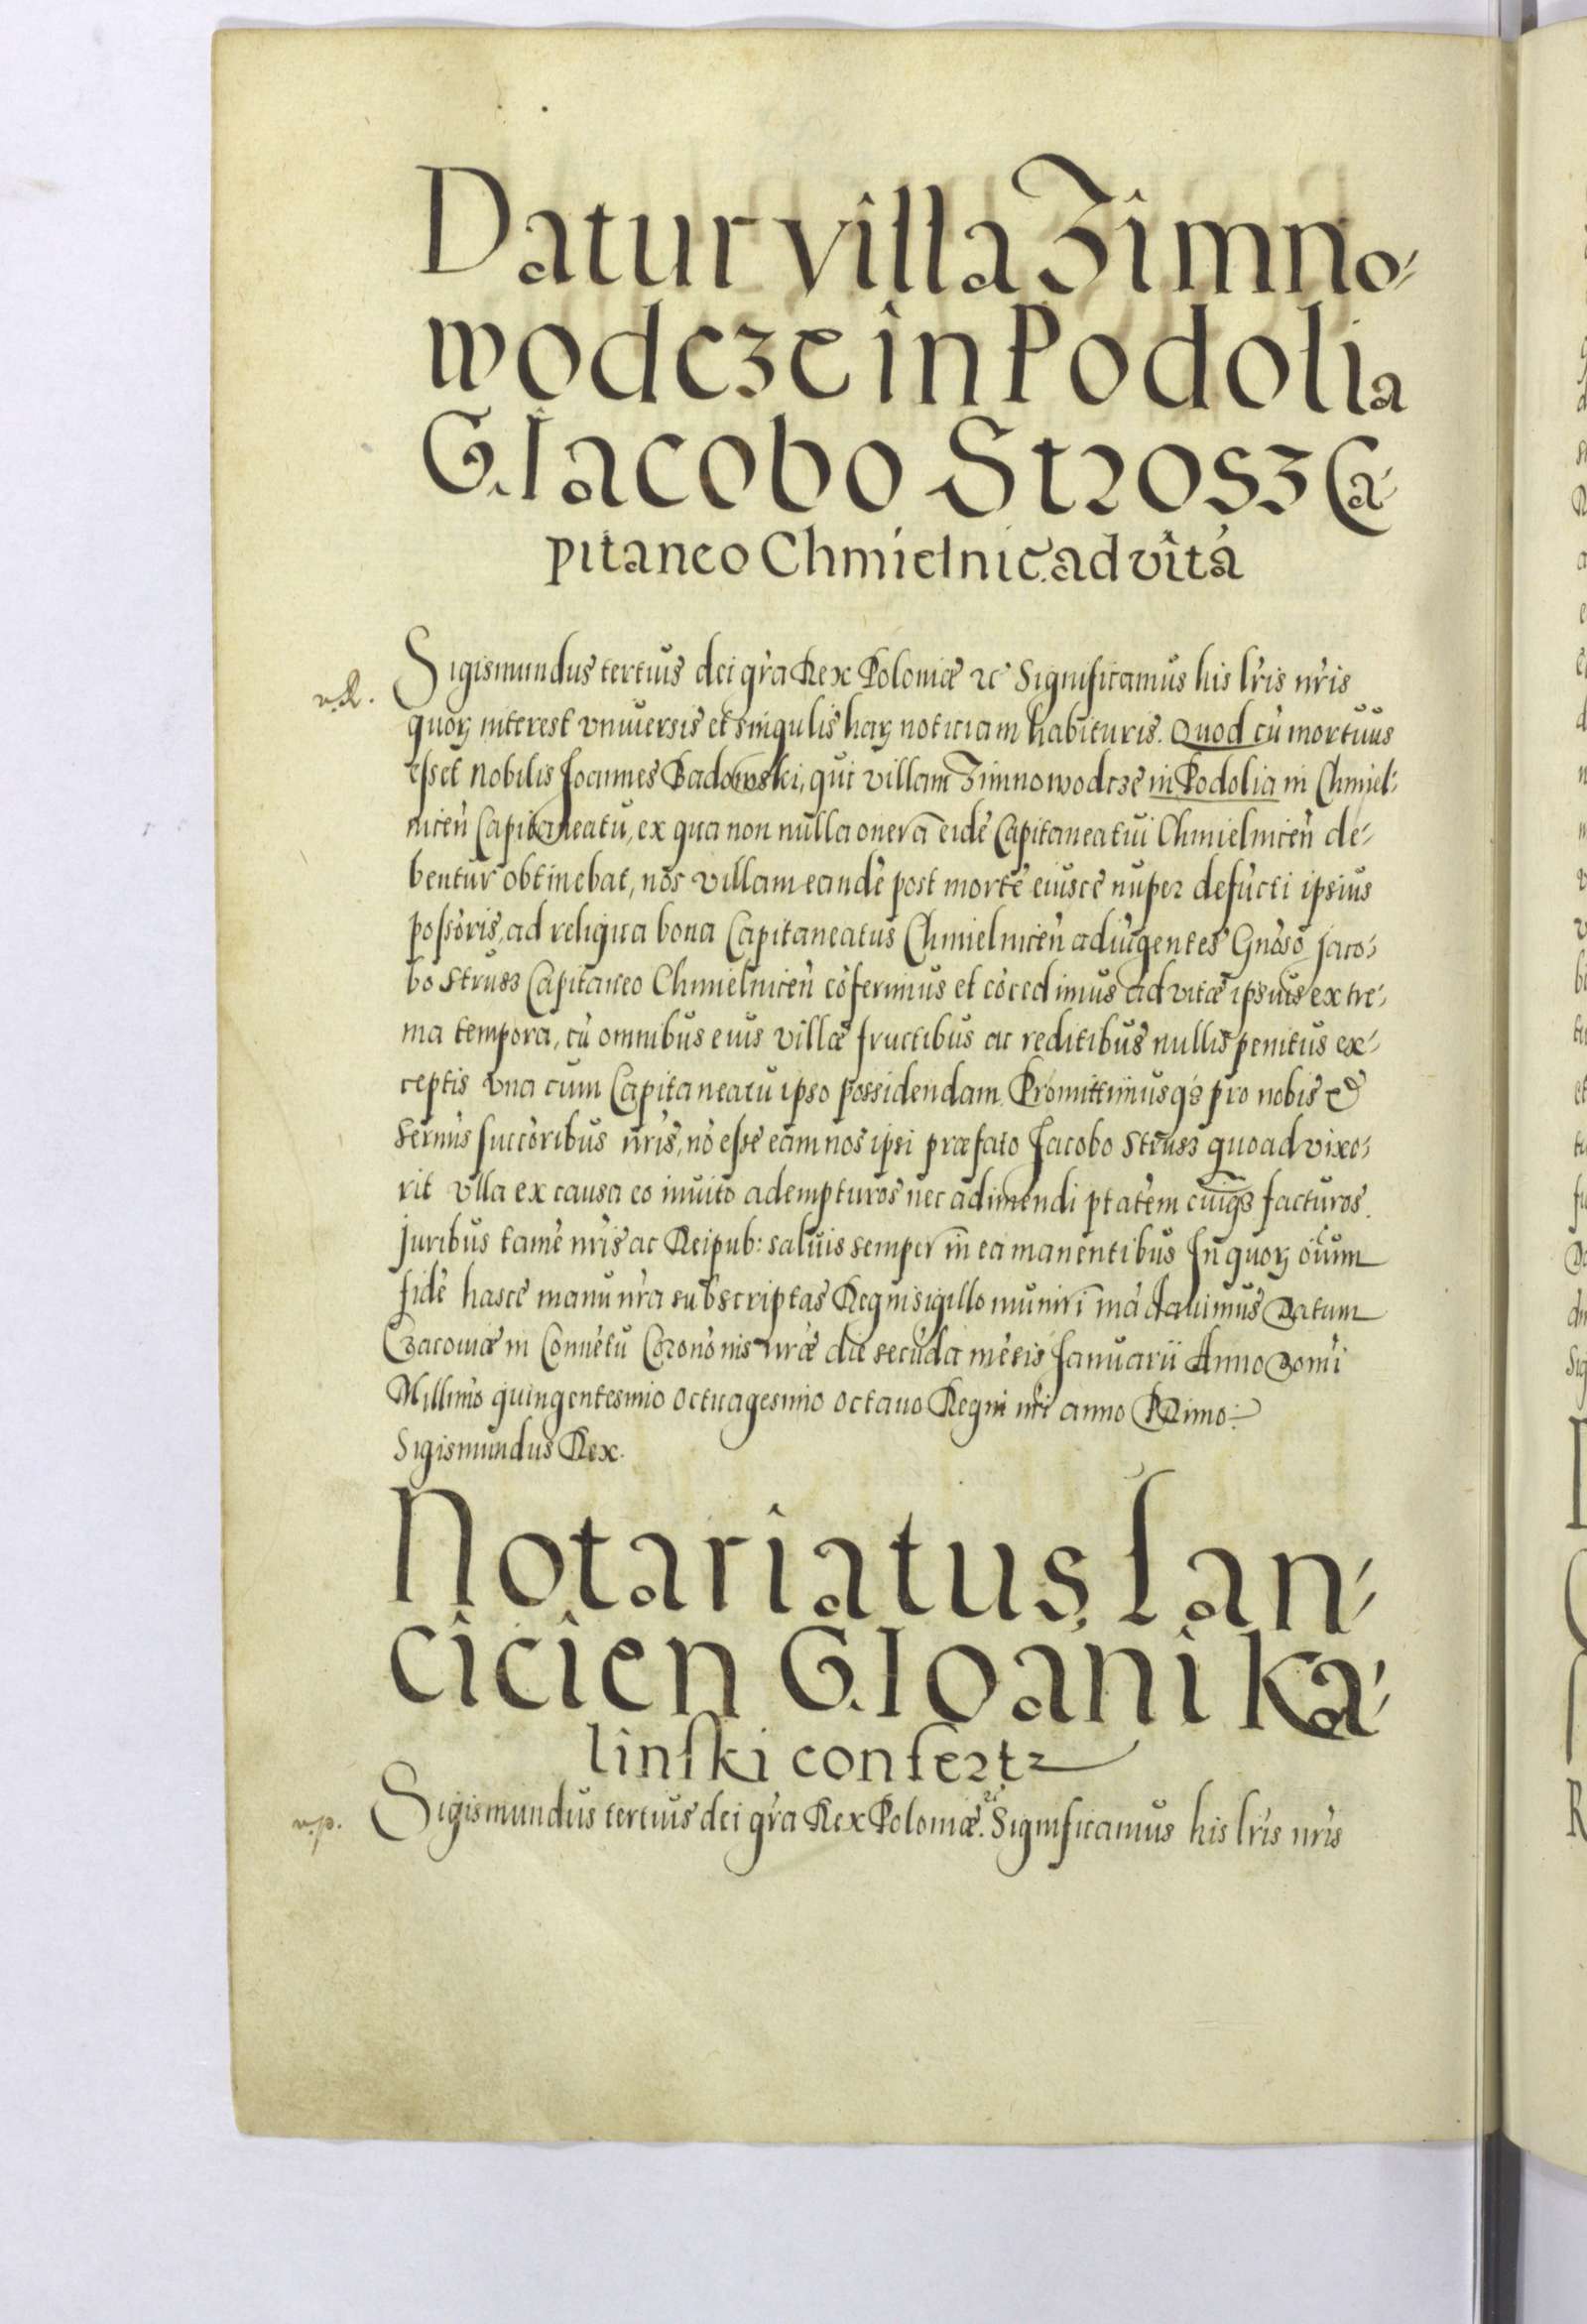 Datur villa Zimno-
wodcze in Podolia
G. Iacobo Strosz Ca-
pitaneo Chmielnic. ad vitã
Sigismundus tertius dei gr̃a Rex Poloniæ ꝛc̃ Significamus his lr̃is nr̃is
quorꝫ interest vniuersis et singulis harꝫ noticiam habituris. Quod cũ mortuus
esset Nobilis Joannes Badowski, qui villam Zimnowodcze in Podolia in Chmiel-
nicen̄ Capitaneatu, ex qua non nulla onera eidẽ Capitaneatui Chmielnicen̄ de-
bentur obtinebat, nos villam eandẽ post mortẽ eiuscẽ nuper defũcti ipsius
possõris, ad reliqua bona Capitaneatus Chmielnicen̄ adiũgentes Gnõso Jaco-
bo Strusz Capitaneo Chmielnicen̄ cõferimus et cõcedimus ad vitæ ipsius extre-
ma tempora, cũ omnibus eius villæ fructibus ac reditibus nullis penitus ex-
ceptis vna cum Capitaneatu ipso possidendam. Promittimusqꝫ pro nobis et
sernĩs succõribus nr̃is, nõ esse eam nos ipsi præfato Jacobo Strusz quoad vixe-
rit vlla ex causa eo inuito adempturos nec adimendi ptatẽm cuiqꝫ facturos.
Juribus tamẽ nr̃is ac Reipub: saluis semper in ea manentibus In quorꝫ oĩum
fidẽ hasce manu nr̃a subscriptas Regni sigillo muniri mãdauimus Datum
Cracouiæ in Conuẽtu Coronõnis nr̃æ die secũda mẽsis Januarii Anno Domĩ
Millimõ quingentesimo octuagesimo octauo Regni nr̃i anno Primo
Sigismundus Rex.
Notariatus Lan-
cicien G. Ioãni Ka-
linski confert
Sigismundus tertius dei gr̃a Rex Poloniæ. ꝛc̃ Significamus his lr̃is nr̃is